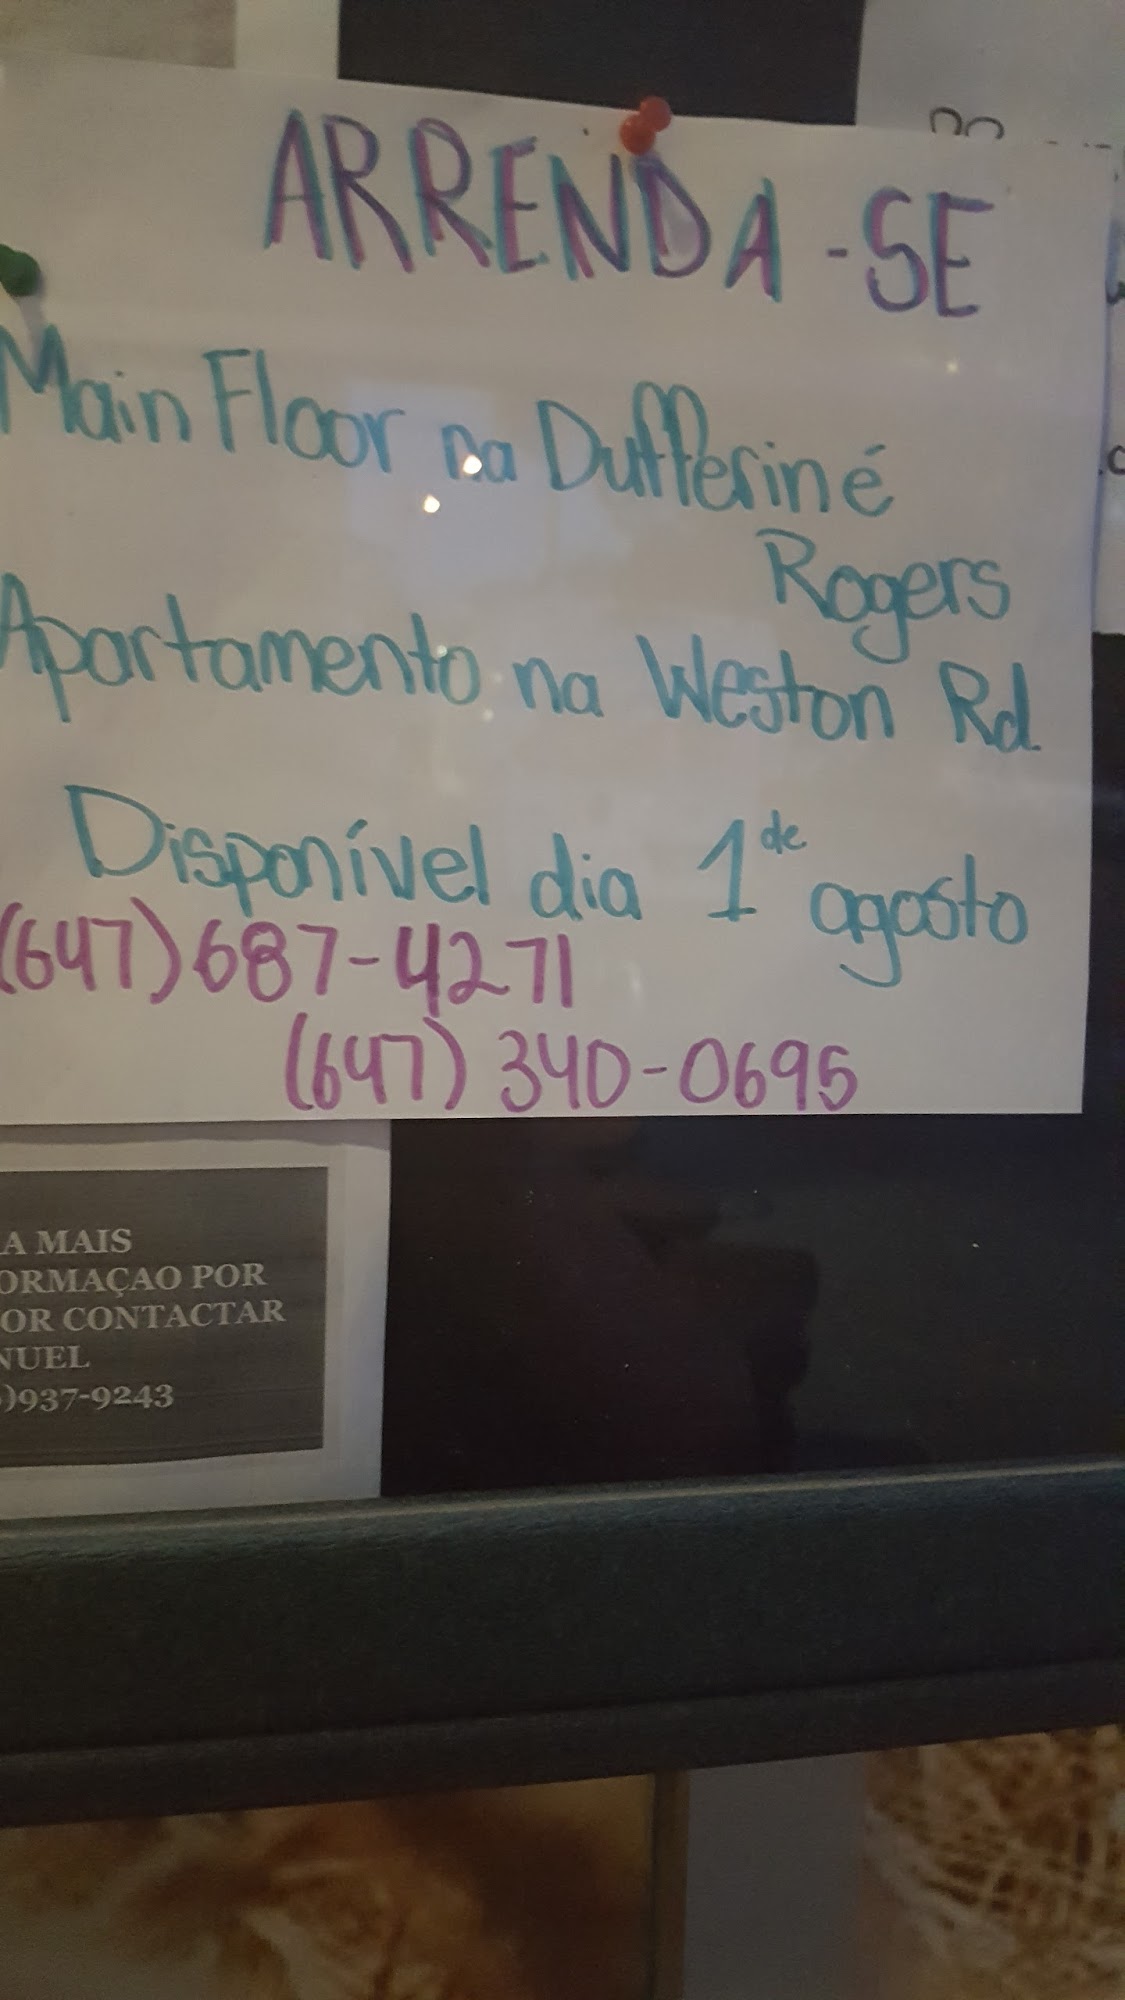 ARRENDA-SE
Main Floor na Dufferin é
Rogers
Apartamento na Weston Rd.
Disponível dia 1 de agosto
(647) 687-4271
(647) 340-0695
A MAIS
ORMAÇAO POR
OR CONTACTAR
NUEL
)937-9243